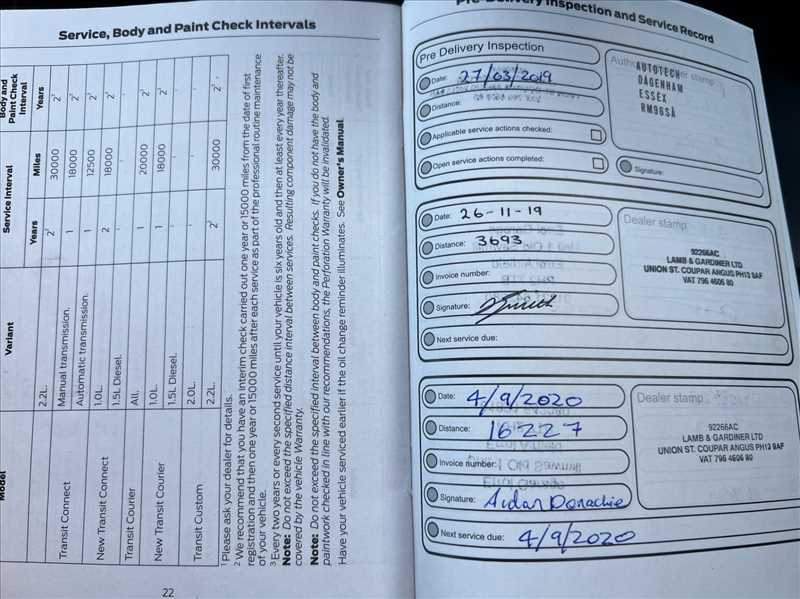 Service, Body and Paint Check Intervals
Model
Variant
Service Interval
Body and Paint Check Interval
Years
Miles
Years
2.2L.
2¹
30000
2¹
Transit Connect
Manual transmission.
1
18000
2³
Automatic transmission.
1
12500
2³
New Transit Connect
1.0L.
2
18000
2¹
1.5L Diesel.
-
-
-
Transit Courier
All.
1
20000
2¹
New Transit Courier
1.0L.
1
18000
2¹
1.5L Diesel.
-
-
-
Transit Custom
2.0L.
-
-
-
2.2L.
2²
30000
2¹
¹ Please ask your dealer for details.
² We recommend that you have an interim check carried out one year or 15000 miles from the date of first
registration and then one year or 15000 miles after each service as part of the professional routine maintenance
of your vehicle.
³ Every two years or every second service until your vehicle is six years old and then at least every year thereafter.
Note: Do not exceed the specified distance interval between services. Resulting component damage may not be
covered by the vehicle Warranty.
Note: Do not exceed the specified interval between body and paint checks. If you do not have the body and
paintwork checked in line with our recommendations, the Perforation Warranty will be invalidated.
Have your vehicle serviced earlier if the oil change reminder illuminates. See Owner's Manual.
22
Pre-Delivery Inspection and Service Record
Pre Delivery Inspection
Date: 27/03/2019
Distance:
Applicable service actions checked:
Open service actions completed:
AUTOTECH
DAGENHAM
ESSEX
RM96SA
Signature:
Date: 26-11-19
Distance: 3693
Invoice number:
Signature:
Next service due:
Dealer stamp
92266AC
LAMB & GARDINER LTD
UNION ST. COUPAR ANGUS PH13 9AF
VAT 796 4606 80
Date: 4/9/2020
Distance: 16227
Invoice number:
Signature: Aidan Donachie
Next service due: 4/9/2020
Dealer stamp
92266AC
LAMB & GARDINER LTD
UNION ST. COUPAR ANGUS PH13 9AF
VAT 796 4606 80